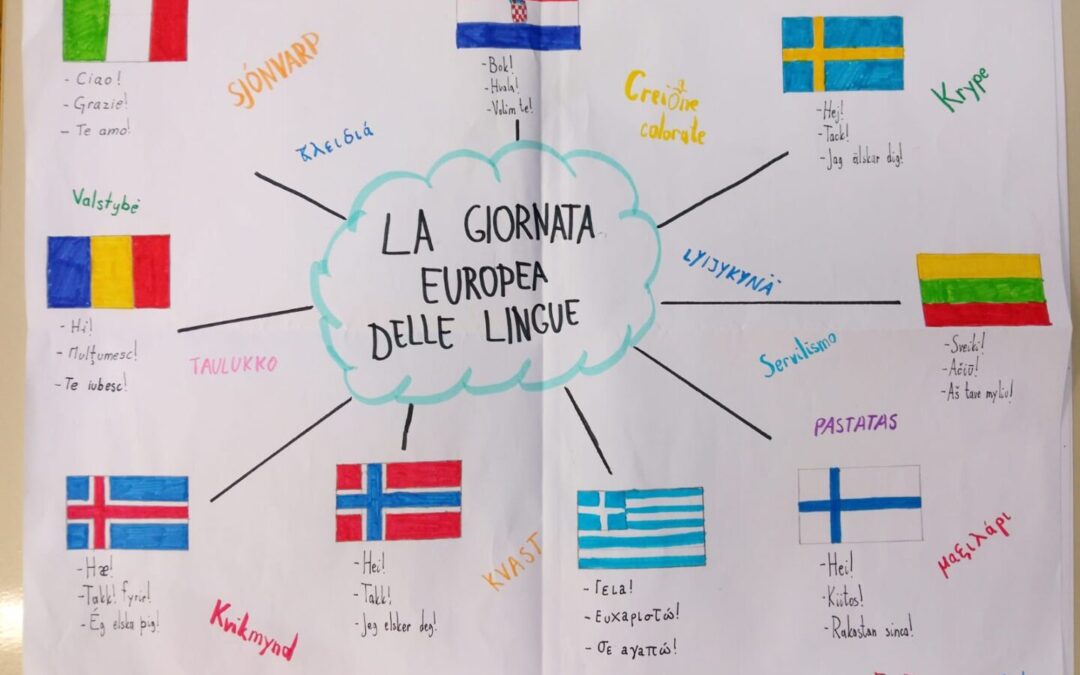 - Ciao!
- Grazie!
- Te amo!
SJÓNVARP
κλειδιά
- Bok!
- Hvala!
- Volim te!
Creioane
colorate
- Hej!
- Tack!
- Jag älskar dig!
Krype
Valstybė
- Hi!
- Mulţumesc!
- Te iubesc!
TAULUKKO
LA GIORNATA
EUROPEA
DELLE LINGUE
LYIJYKYNÄ
Servilismo
- Sveiki!
- Ačiū!
- Aš tave myliu!
PASTATAS
- Hæ!
- Takk! fyrir!
- Ég elska þig!
Kvikmynd
- Hei!
- Takk!
- Jeg elsker deg!
KVAST
- Γεια!
- Ευχαριστώ!
- σε αγαπώ!
- Hei!
- Kiitos!
- Rakastan sinoa!
μαξιλάρι